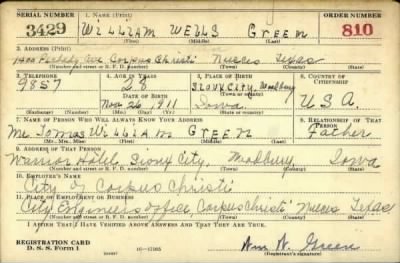 SERIAL NUMBER 1. NAME (Print) ORDER NUMBER
3429 WILLIAM WELLS GREEN 810
(First) (Middle) (Last)
2. ADDRESS (Print)
1400 Peabody Ave Corpus Christi Nueces Texas
(Number and street or R. F. D. number) (Town) (County) (State)
3. TELEPHONE 4. AGE IN YEARS 5. PLACE OF BIRTH 6. COUNTRY OF CITIZENSHIP
9857 SIOUX CITY, Woodbury
DATE OF BIRTH (Town) (County)
Nov. 26 1911 Iowa U.S.A.
(Exchange) (Number) (Mo.) (Day) (Yr.) (State or country)
7. NAME OF PERSON WHO WILL ALWAYS KNOW YOUR ADDRESS 8. RELATIONSHIP OF THAT PERSON
Mr Tomas WILLIAM GREEN Father
(Mr., Mrs., Miss) (First) (Middle) (Last)
9. ADDRESS OF THAT PERSON
Warrior Hotel, Sioux City, Iowa
(Number and street or R. F. D. number) (Town) (County) (State)
10. EMPLOYER'S NAME
City of Corpus Christi
11. PLACE OF EMPLOYMENT OR BUSINESS
City Engineers office, Corpus Christi Nueces Texas
(Number and street or R. F. D. number) (Town) (County) (State)
I AFFIRM THAT I HAVE VERIFIED ABOVE ANSWERS AND THAT THEY ARE TRUE.
REGISTRATION CARD
D. S. S. Form 1 16-17105 Wm W. Green
(Registrant's signature)